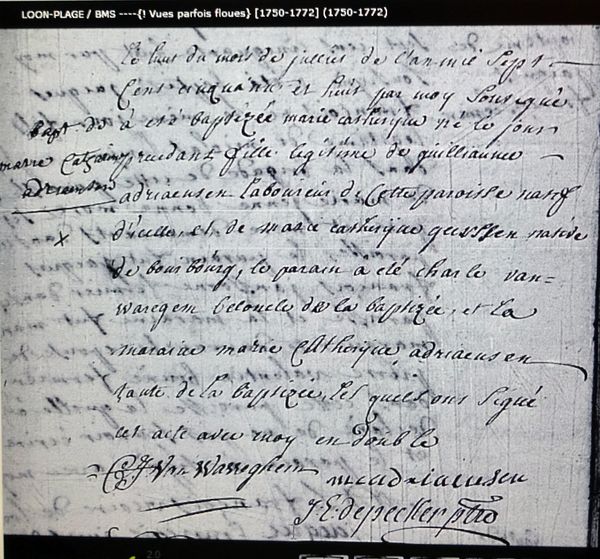 LOON-PLAGE / BMS ----{! Vues parfois floues} [1750-1772] (1750-1772)
Le huit du mois de juillet de l'année Sept
Cent cinquante et huit par moy Sousigné
bapt. de
à été baptizée marie catherique né le jour
marie
precedant fille legitime de guilliaume
adriaensen
adriaensen laboureur de Cette paroisse natif
d'icelle, et de marie catherique native
de bourbourg, le parain à été charle van=
waregem beloncle de la baptizée, et la
maraine marie Catherique adriaensen
tante de la baptizée, les quels ont Signé
cet acte avec moy en double
CJ Van Wareghem
mc adriaensen
J.E. depecker ptre
20